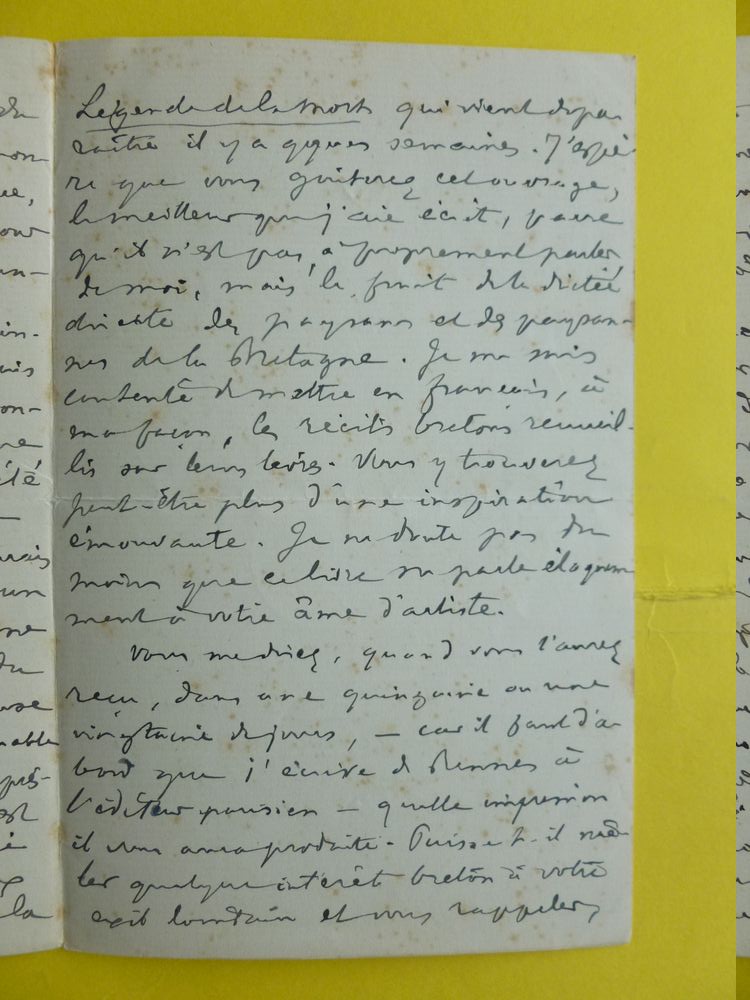 Légende de la Mort qui vient de pa
raître il y a qques semaines. J'espè
re que vous goûterez cet ouvrage,
le meilleur que j'aie écrit, parce
qu'il n'est pas, à proprement parler
de moi, mais le fruit de la dictée
directe des paysans et des paysan-
nes de la Bretagne. Je me suis
contenté de mettre en français, à
ma façon, les récits bretons recueil-
lis sur leurs lèvres. Vous y trouverez
peut-être plus d'une inspiration
émouvante. Je ne doute pas du
moins que ce livre ne parle éloquem
ment à votre âme d'artiste.
Vous me direz, quand vous l'aurez
reçu, dans une quinzaine ou une
vingtaine de jours, — car il faut d'a
bord que j'écrive de Rennes à
l'éditeur parisien — quelle impression
il vous aura produite. Puisse-t-il mê
ler quelque intérêt breton à votre
exil lointain et vous rappeler,